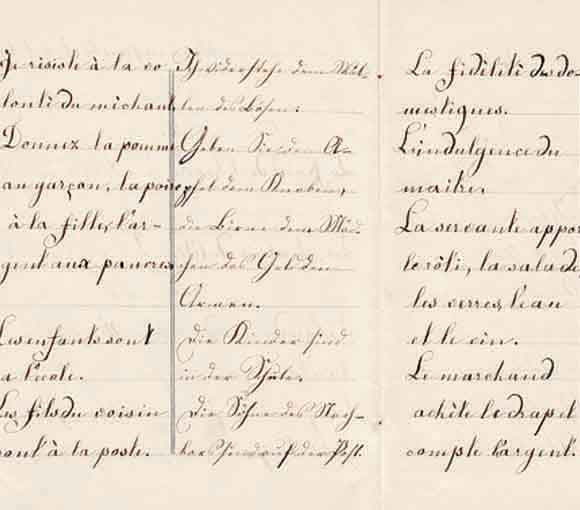 Je risiste à la vo-
lonté du michant
Donnez la pomme
au garçon, la poire
à la fille, l'ar-
gent aux pauvres
Les enfants sont
a l'ecole.
Les fils du voisin
sont à la poste.
Ich widerstehe dem Wil-
len des Bösen.
Geben Sie den A-
pfel dem Knaben,
die Birne dem Mäd-
chen das Geld den
Armen.
Die Kinder sind
in der Schule.
Die Söhne des Nach-
bars sind auf der Post.
La fidéliti des do-
mestiques.
L'indulgence du
maitre.
La servante appor
le rôti, la salade,
les verres, l'eau
et le vin.
Le marchand
achète le drap et
compte l'argent.